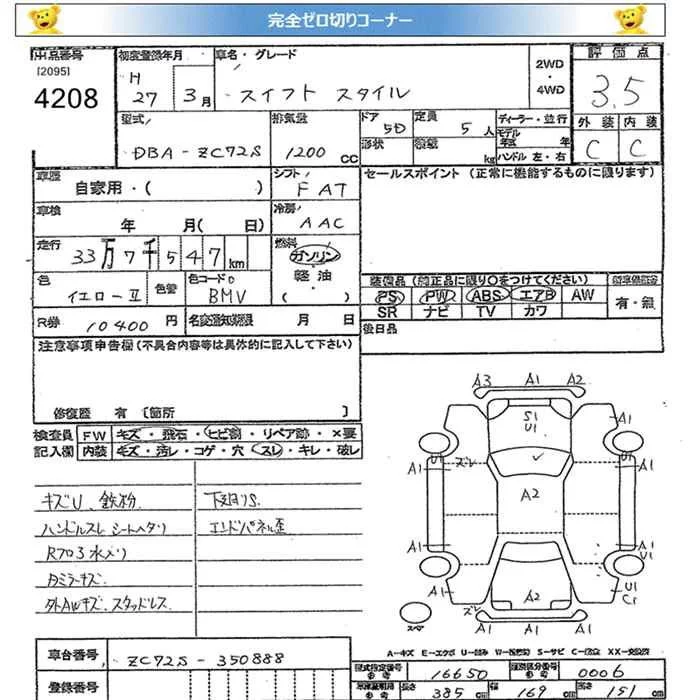 完全ゼロ切りコーナー
出品番号 初度登録年月 車名・グレード 2WD・4WD 評価点
[2095]
4208
H 27 3月 スイフト スタイル 3.5
型式 排気量 ドア 5D 定員 5人 ディーラー・並行 外装 内装
形状 モデル 年式 年
DBA-ZC72S 1200 CC kg ハンドル 左・右 C C
車歴 自家用・( ) シフト FAT セールスポイント (正常に機能するものに限ります)
車検 年 月( 日) 冷房 AAC
走行 33万7千547km 燃料 ガソリン・軽油・( )
色 イエローⅡ 色替 色コードNo BMV
装備品 (純正品に限り○をつけてください)
PS PW ABS エアB AW 有・無
SR ナビ TV カワ
R券 10400円 名変通知期限 月 日 後日品
注意事項申告欄(不具合内容等は具体的に記入して下さい)
修復歴 有〔箇所 〕
検査員 FW キズ・飛石・ヒビ割・リペア跡・×要
記入欄 内装 キズ・汚レ・コゲ・穴・スレ・キレ・破レ
キズU、鉄粉 下廻りS.
ハンドルスレ シートヘタリ エンドパネル歪
Rフロ3水入り
外AWキズ、スタッドレス
A3 A1 A2
S1
U1
A1
U1 ズレ U1
A1 A1
A2
A1 A1
U1
A1 A2 U1
Cr
ズレ
スペア
A1 A1 A1
A-キズ E-エクボ U-凹み W-板金跡 S-サビ C-腐食 XX-交換済
車台番号 ZC72S-350888
型式指定番号 16650 類別区分番号 0006
登録番号 長さ 385cm 幅 169cm 高さ 151cm